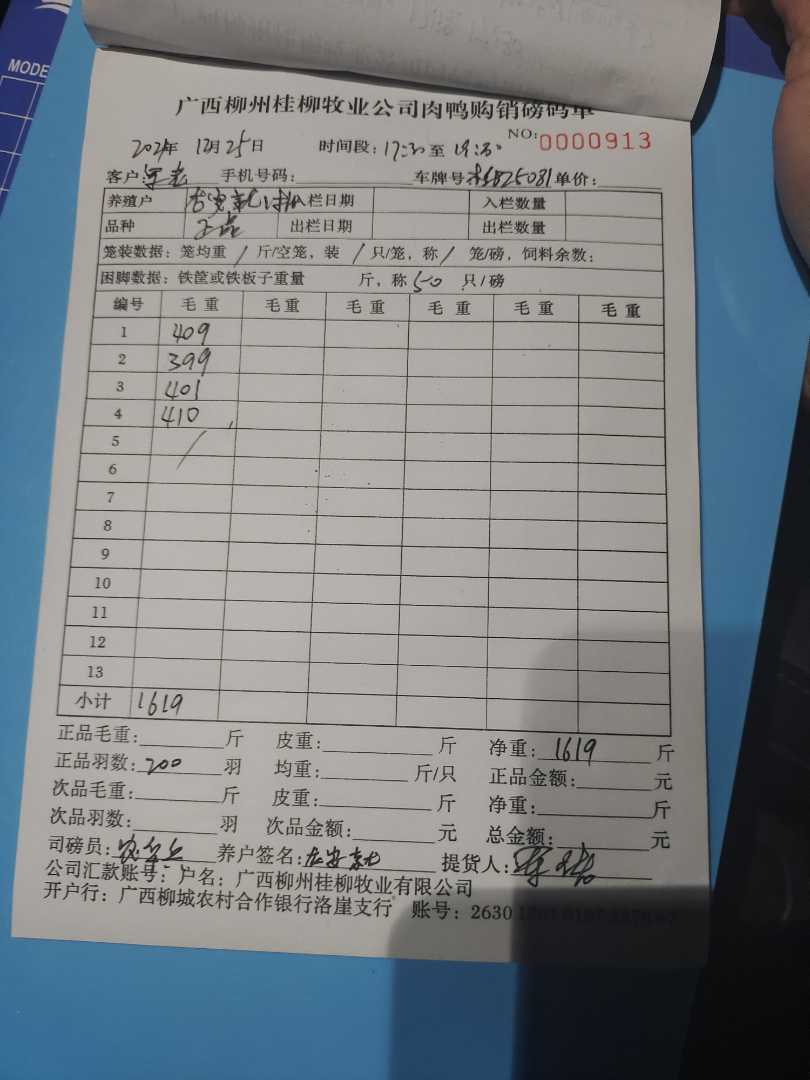 MODE
广西柳州桂柳牧业公司肉鸭购销磅码单
2021年 12月25日 时间段: 17:30至 18:30 NO: 0000913
客户: 手机号码: 车牌号 单价:
养殖户 入栏日期 入栏数量
品种 出栏日期 出栏数量
笼装数据: 笼均重 / 斤/空笼, 装 / 只/笼, 称 / 笼/磅, 饲料余数:
困脚数据: 铁筐或铁板子重量 斤, 称 50 只/磅
编号 毛重 毛重 毛重 毛重 毛重 毛重
1 409
2 399
3 401
4 410
5 /
6
7
8
9
10
11
12
13
小计 1619
正品毛重: 斤 皮重: 斤 净重: 1619 斤
正品羽数: 200 羽 均重: 斤/只 正品金额: 元
次品毛重: 斤 皮重: 斤 净重: 斤
次品羽数: 羽 次品金额: 元 总金额: 元
司磅员: 养户签名: 提货人:
公司汇款账号: 户名: 广西柳州桂柳牧业有限公司
开户行: 广西柳城农村合作银行洛崖支行 账号: 2630